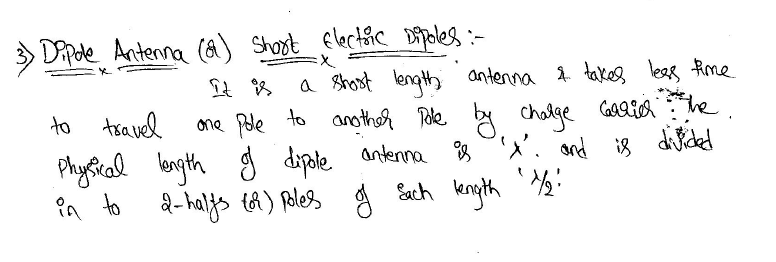 3) Dipole Antenna (or) Short Electric Dipoles :-
It is a short length antenna & takes less time
to travel one pole to another Pole by charge carrier. The
Physical length of dipole antenna is 'λ'. and is divided
in to 2-halfs (or) poles of each length 'λ/2'.